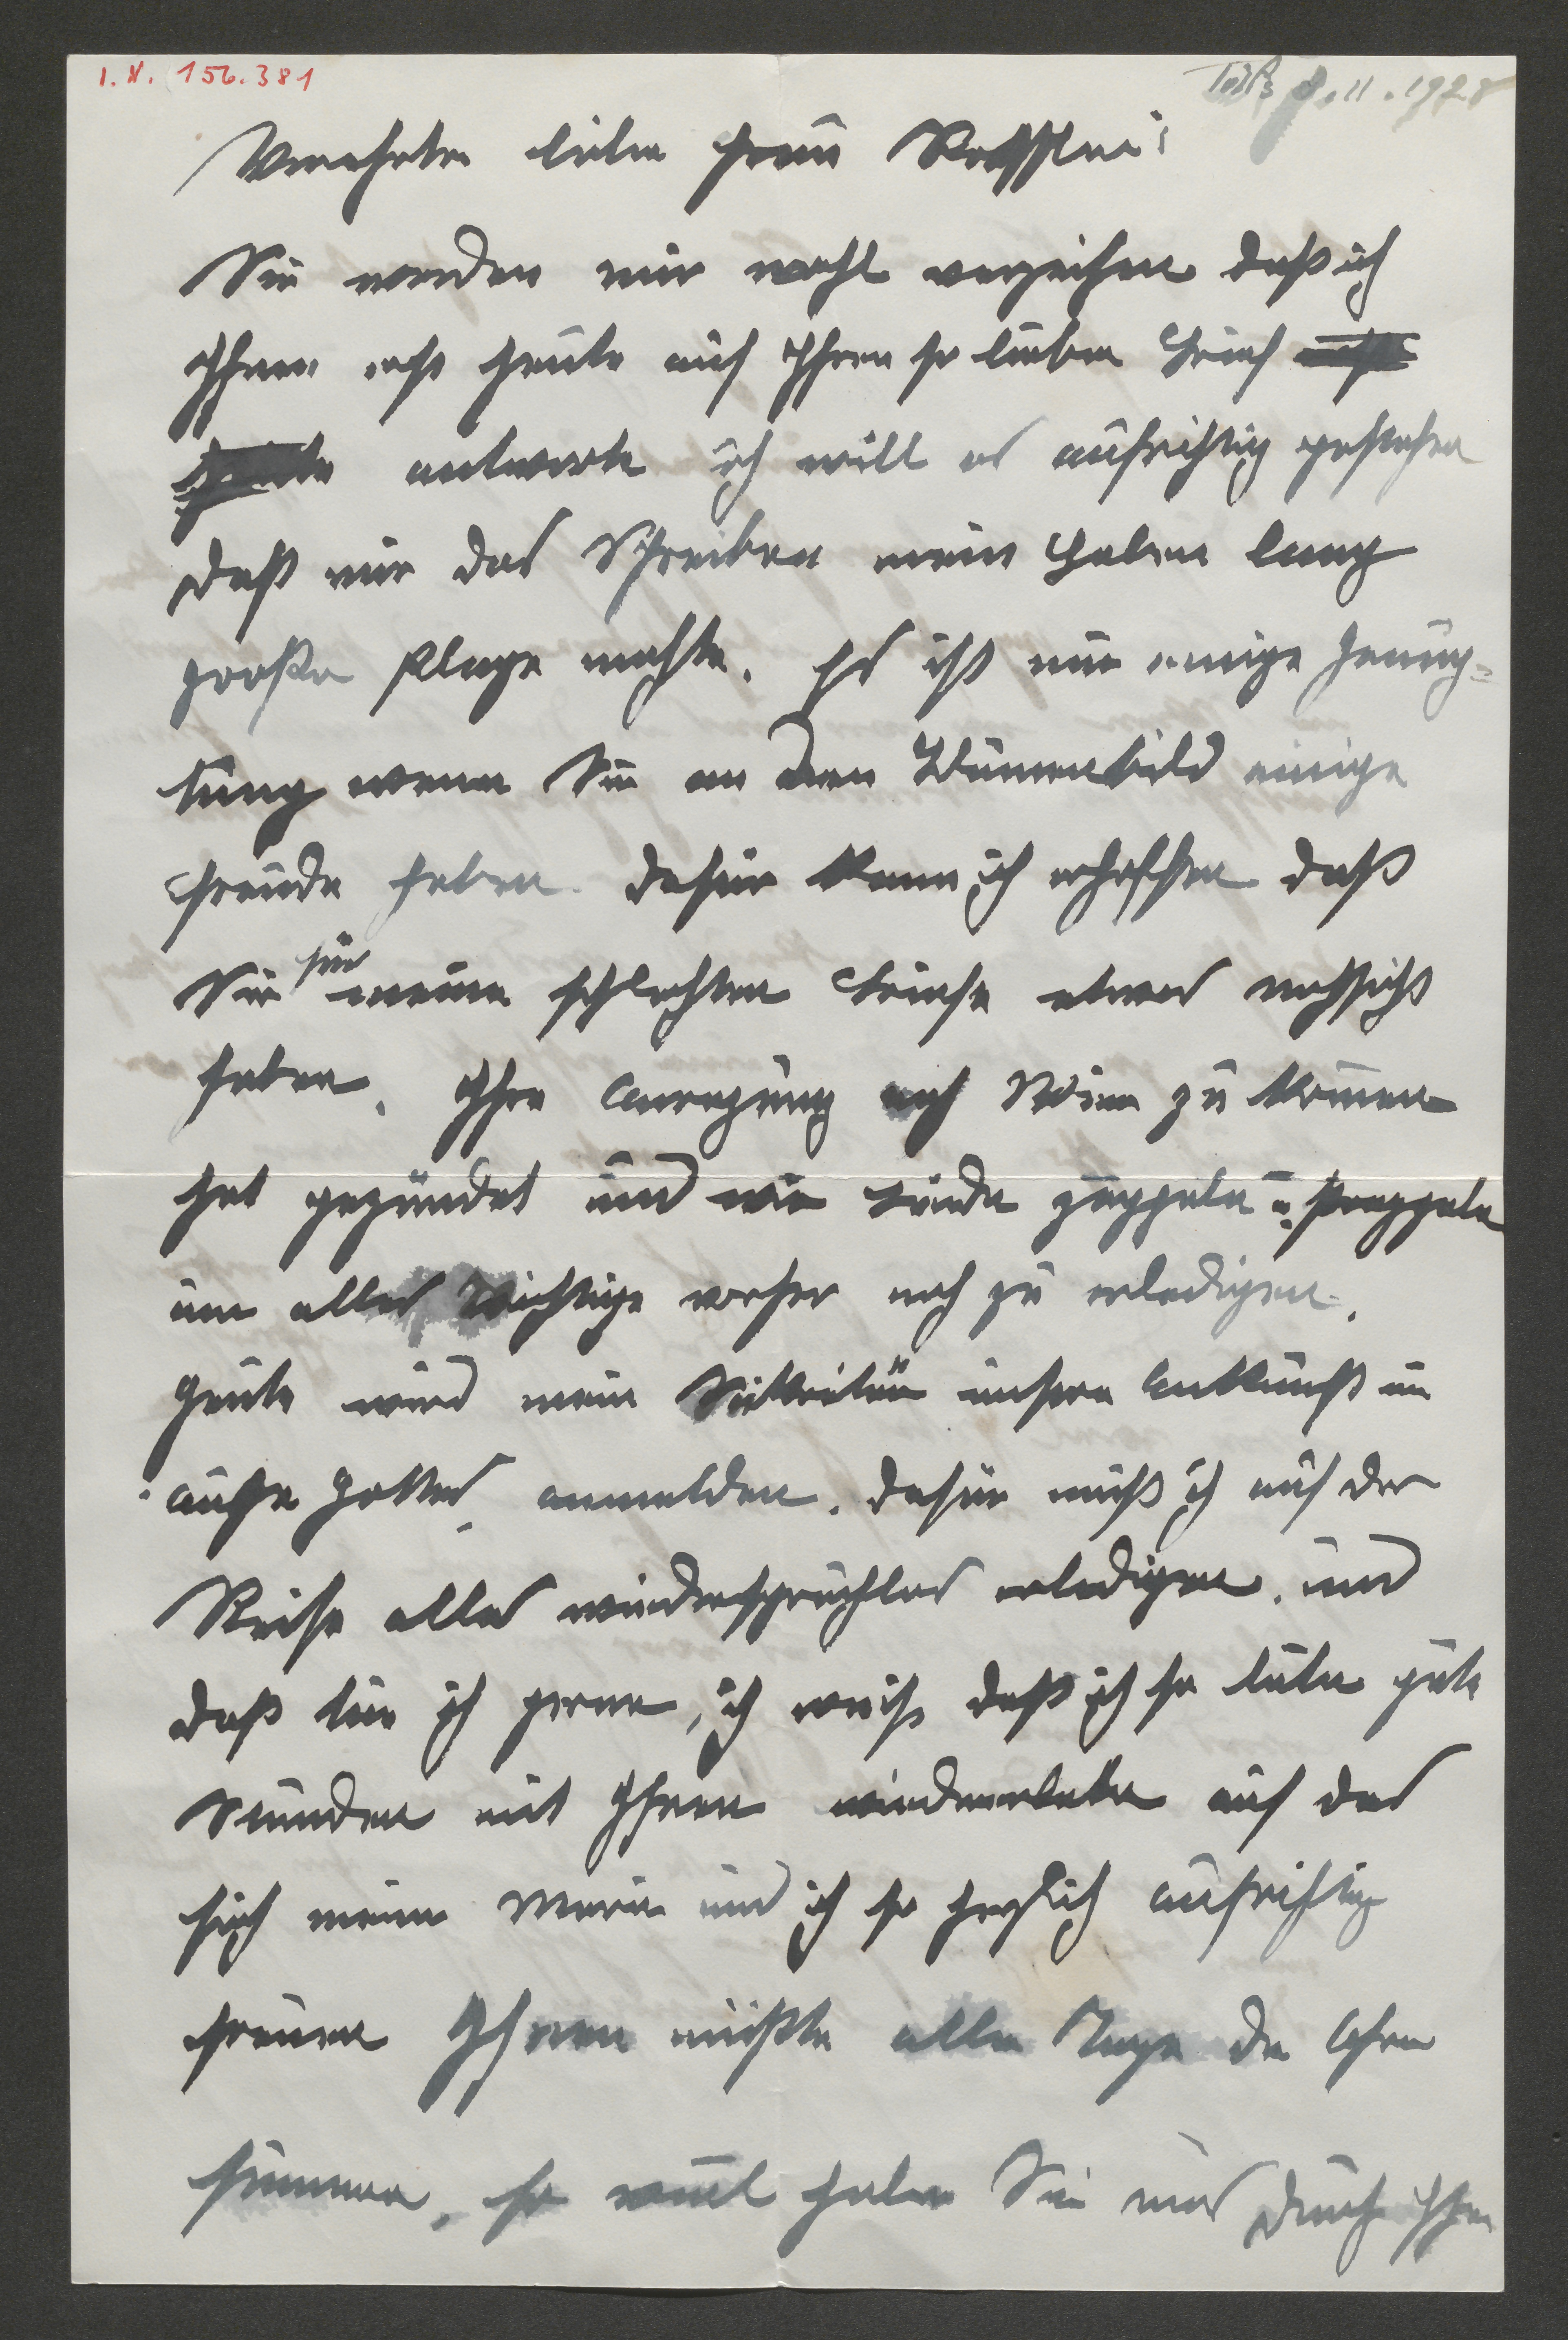 I. N. 156.381
Tölz 8.11.1928
Verehrte liebe Frau
Sie werden mir wohl verzeihen daß ich
Ihnen erst heute auf Ihren so lieben Brief erst
heute antworte ich will es aufrichtig gestehen
daß mir das Schreiben mein Leben lang
große Plage machte. Es ist mir einige Genug=
tung wenn Sie an dem Blumenbild einige
Freude haben. dafür kann ich erhoffen daß
Sie für meine schlechten Briefe etwas nachsicht
haben. Ihre Anregung nach Wien zu kommen
hat gezündet und wir beide zappeln u.
um alles Wichtige vorher noch zu erledigen.
Heute wird mein Sekretär unsere Ankunft im
Auge Gottes anmelden. dafür muß ich auf der
Reise alles wiederspruchlos erledigen. und
daß tue ich gerne, ich weiß daß ich so liebe gute
Stunden mit Ihnen wiedererlebe auf das
sich meine Marie und ich so herzlich aufrichtig
freuen Ihnen müßte alle Tage die Ohren
summen, so viel haben Sie uns durch Ihre